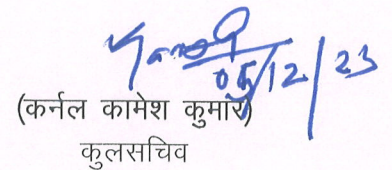 05/12/23
(कर्नल कामेश कुमार)
कुलसचिव